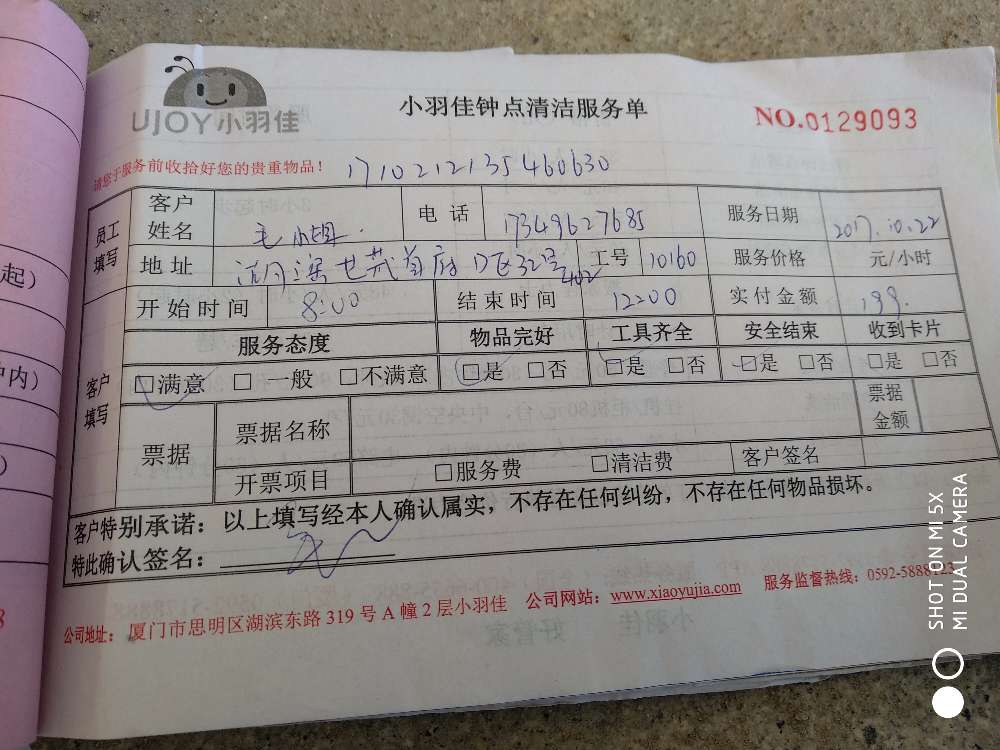 UJOY小羽佳
小羽佳钟点清洁服务单
NO.0129093
请您于服务前收拾好您的贵重物品！
171021213546063​0
员工填写
客户姓名 毛小姐 电话 17349627685 服务日期 2017.10.22
地址 世茂首府 D区32号402 工号 10160 服务价格 元/小时
开始时间 8:00 结束时间 12:00 实付金额 199.
客户填写
服务态度 物品完好 工具齐全 安全结束 收到卡片
□满意 □一般 □不满意 □是 □否 □是 □否 □是 □否 □是 □否
票据 票据名称 票据金额
开票项目 □服务费 □清洁费 客户签名
客户特别承诺：以上填写经本人确认属实，不存在任何纠纷，不存在任何物品损坏。
特此确认签名：
公司地址：厦门市思明区湖滨东路319号A幢2层小羽佳 公司网站：www.xiaoyujia.com 服务监督热线：0592-5888123
起）
中内）
）
8
SHOT ON MI 5X
MI DUAL CAMERA